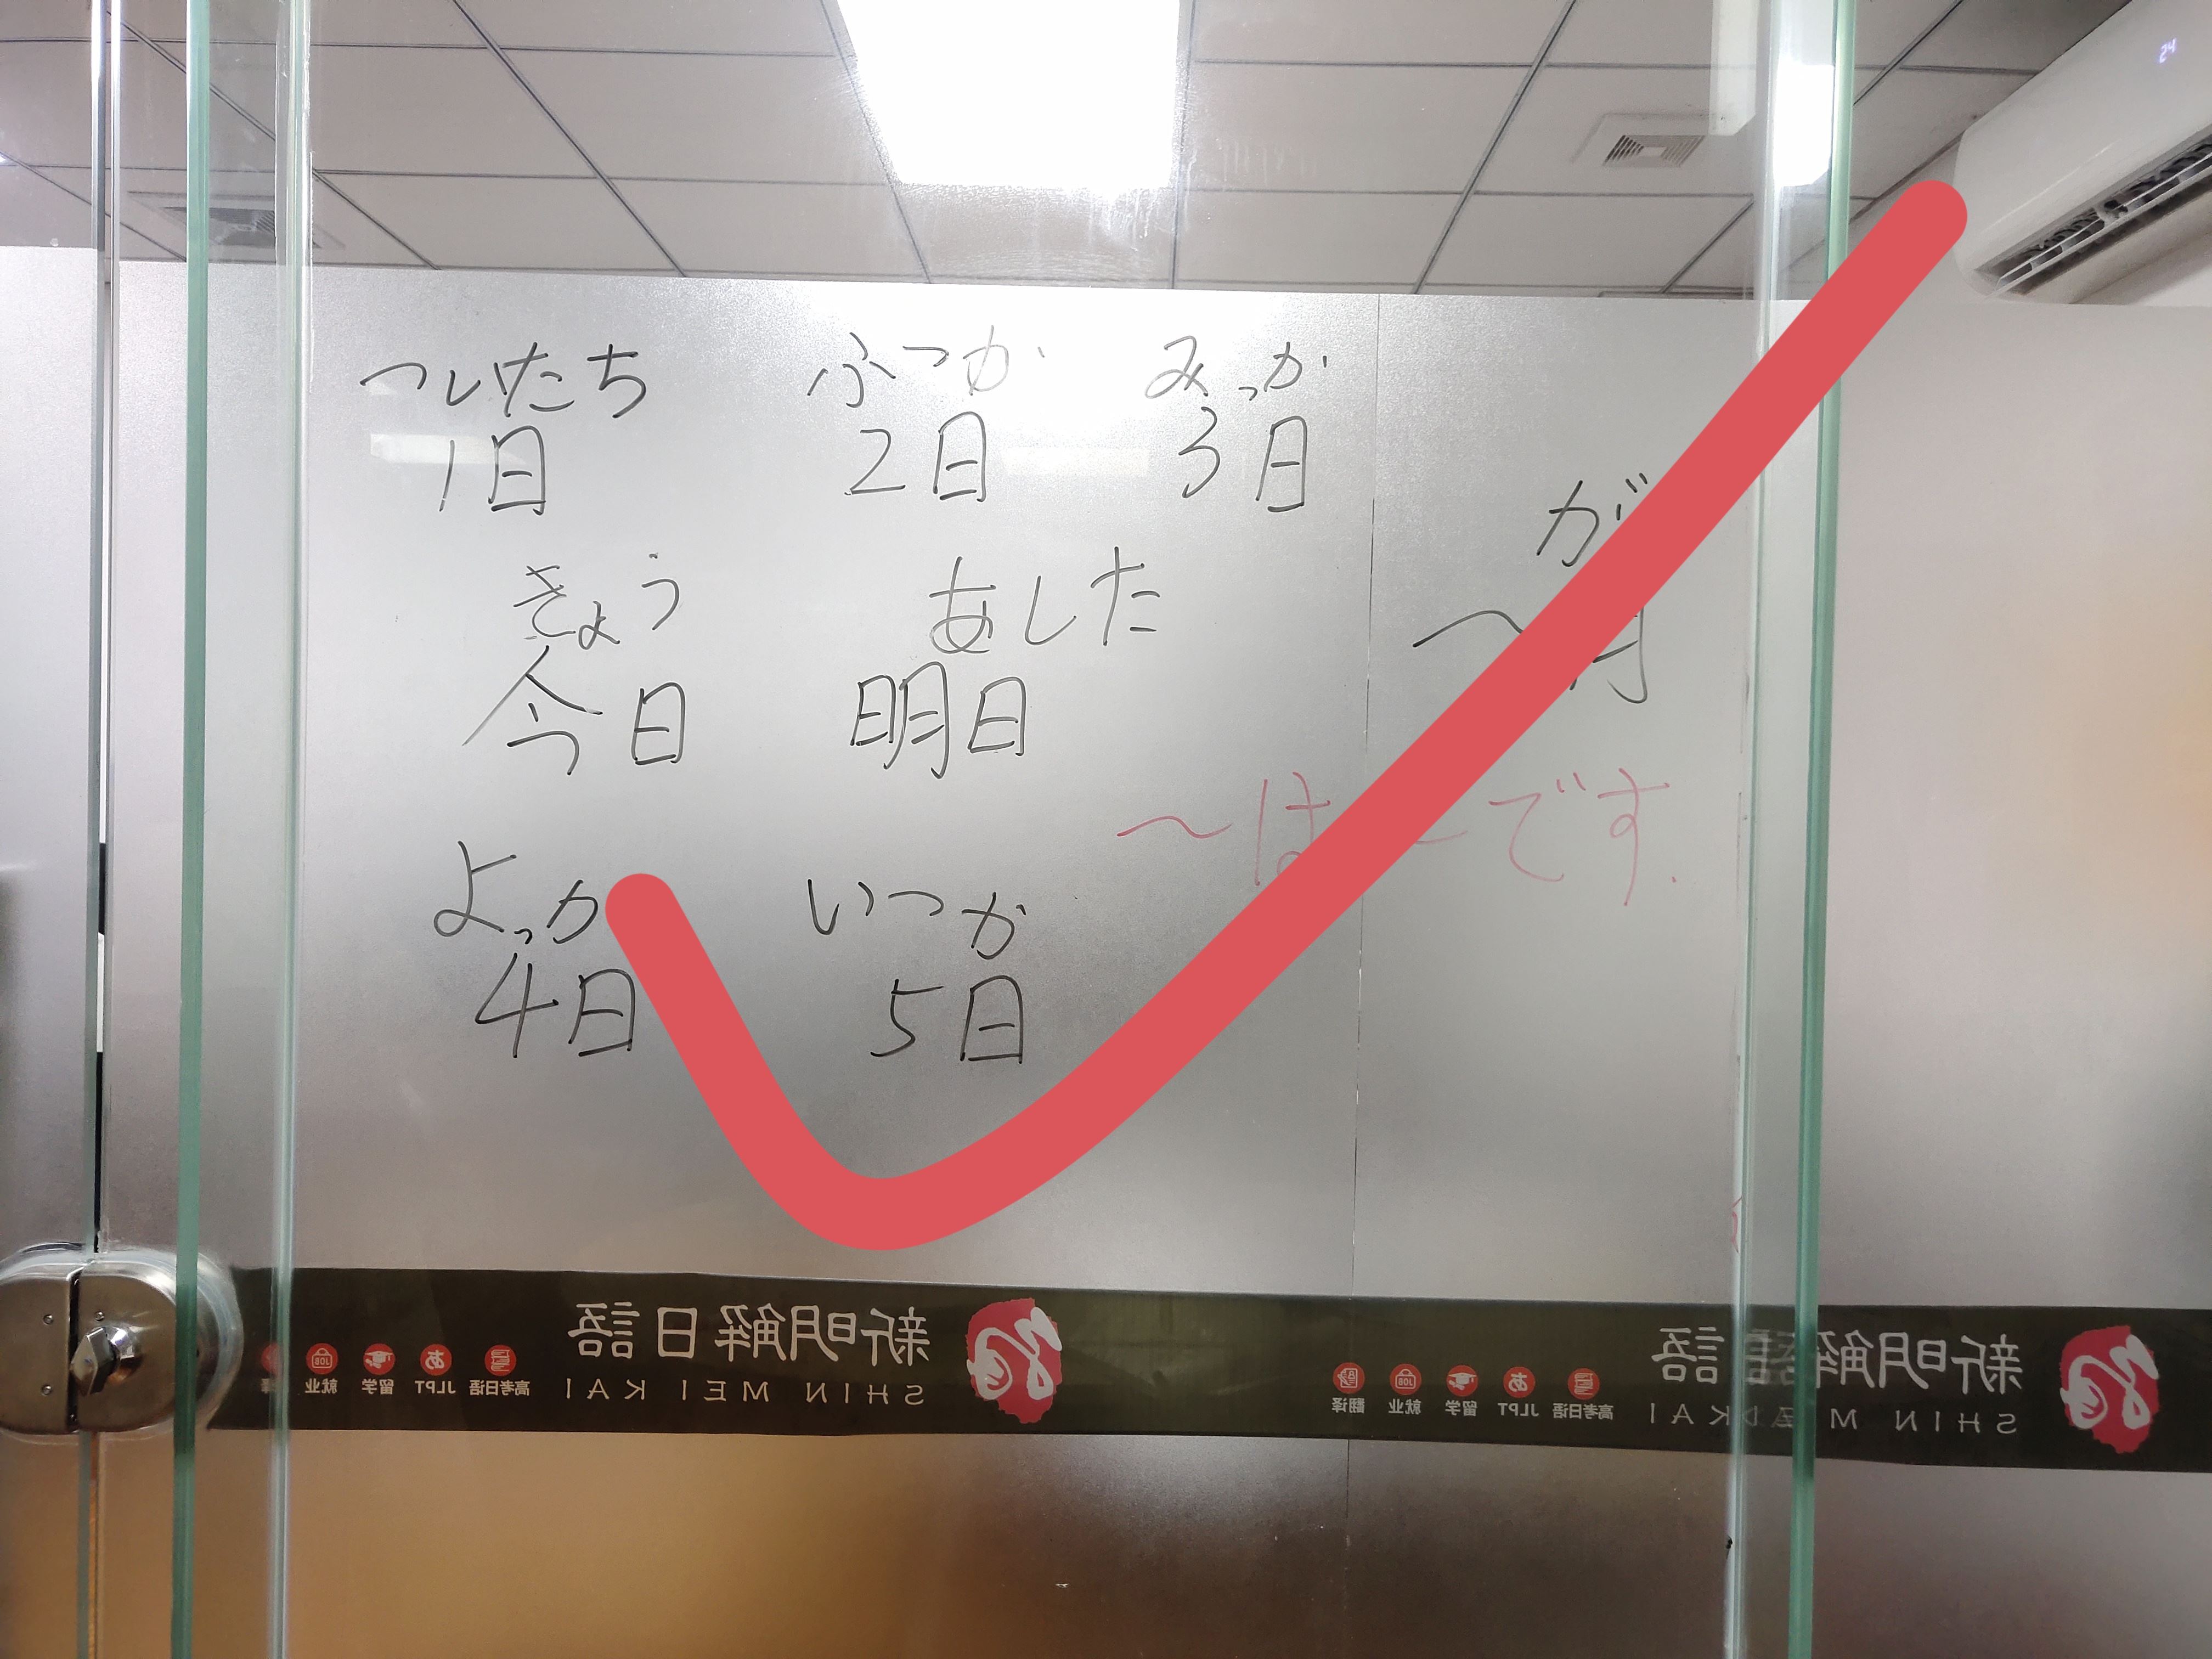 ついたち ふつか みっか
1日 2日 3日
が
きょう あした
今日 明日
〜月
〜は〜です.
よっか いつか
4日 5日
新明解日語
SHIN MEI KAI
高考日语 JLPT 留学 就业
新明解 語
SHIN M KAI
高考日语 JLPT 留学 就业 翻译
24